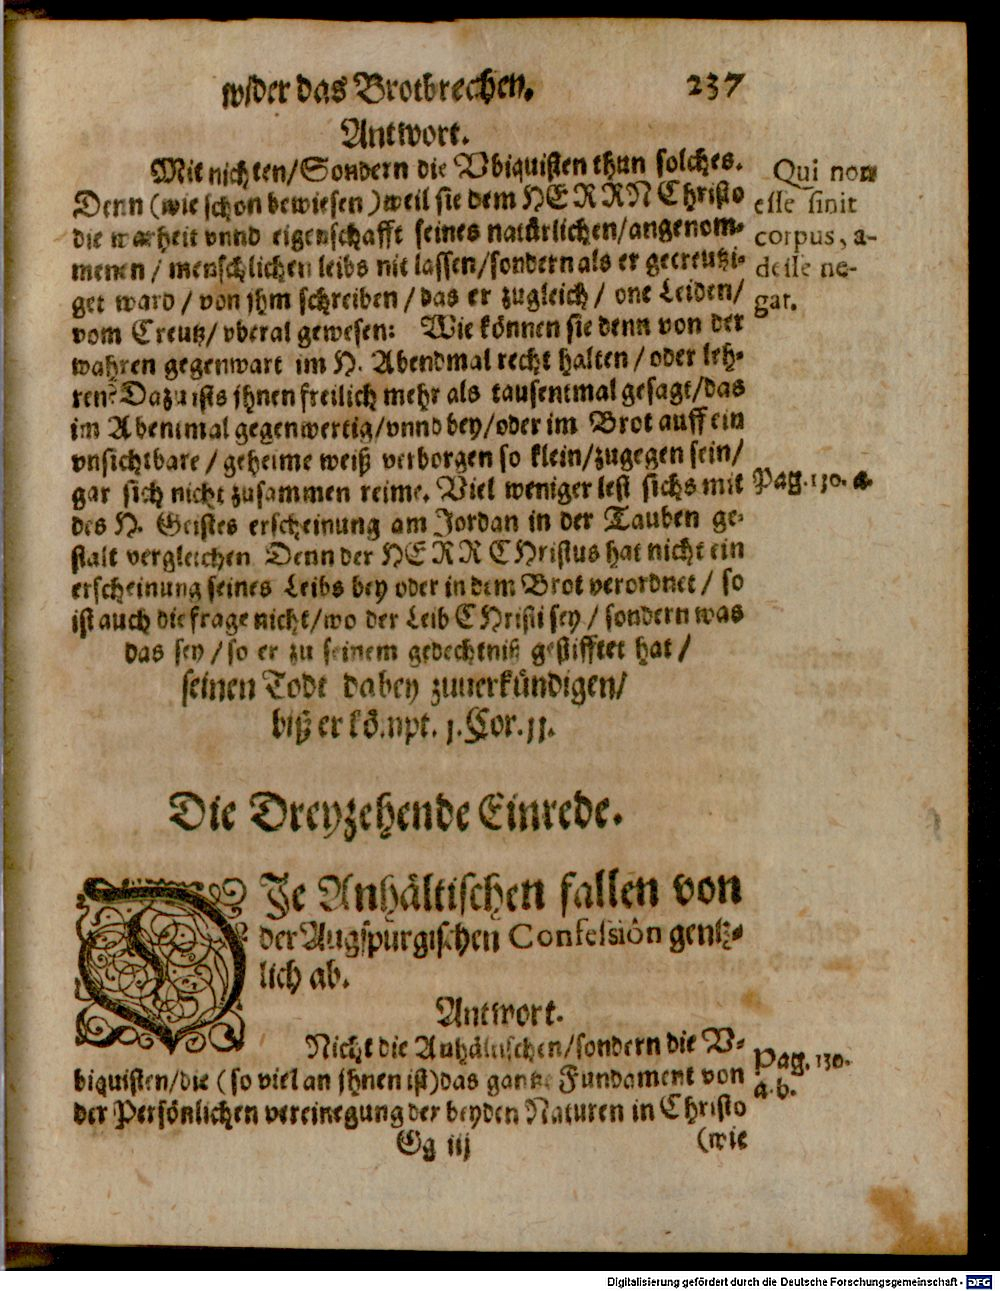 wider das Brotbrechen. 237
Antwort.
Mit nichten/Sondern die Vbiquisten thun solches.
Denn (wie schon bewiesen) weil sie dem HERRN Christo
die warheit vnnd eigenschafft seines natürlichen/angenom-
menen / menschlichen leibs nit lassen/sondern als er gecreutzi-
get ward / von jhm schreiben / das er zugleich / one Leiden/
vom Creutz/ vberal gewesen: Wie können sie denn von der
wahren gegenwart im H. Abendmal recht halten / oder leh-
ren? Dazu ists jhnen freilich mehr als tausentmal gesagt/das
im Abentmal gegenwertig/vnnd bey/oder im Brot auff ein
vnsichtbare / geheime weiß verborgen so klein/zugegen sein/
gar sich nicht zusammen reime. Viel weniger lest sichs mit
des H. Geistes erscheinung am Jordan in der Tauben ge-
stalt vergleichen Denn der HERR CHristus hat nicht ein
erscheinung seines Leibs bey oder in dem Brot verordnet / so
ist auch die frage nicht/wo der Leib CHristi sey / sondern was
das sey / so er zu seinem gedechtniß gestifftet hat /
seinen Todt dabey zuuerkündigen/
biß er kömpt. j. Cor. jj.
Qui non
esse sinit
corpus, a-
desse ne-
gat.
Pag. 130. a.
Die Dreyzehende Einrede.
DJe Anhältischen fallen von
der Augspurgischen Confession gentz-
lich ab.
Antwort.
Nicht die Anhältischen/sondern die V-
biquisten/die (so viel an jhnen ist) das gantze Fundament von
der Persönlichen vereinegung der beyden Naturen in Christo
Pag. 130.
a. b.
Gg iij (wie
Digitalisierung gefördert durch die Deutsche Forschungsgemeinschaft - DFG